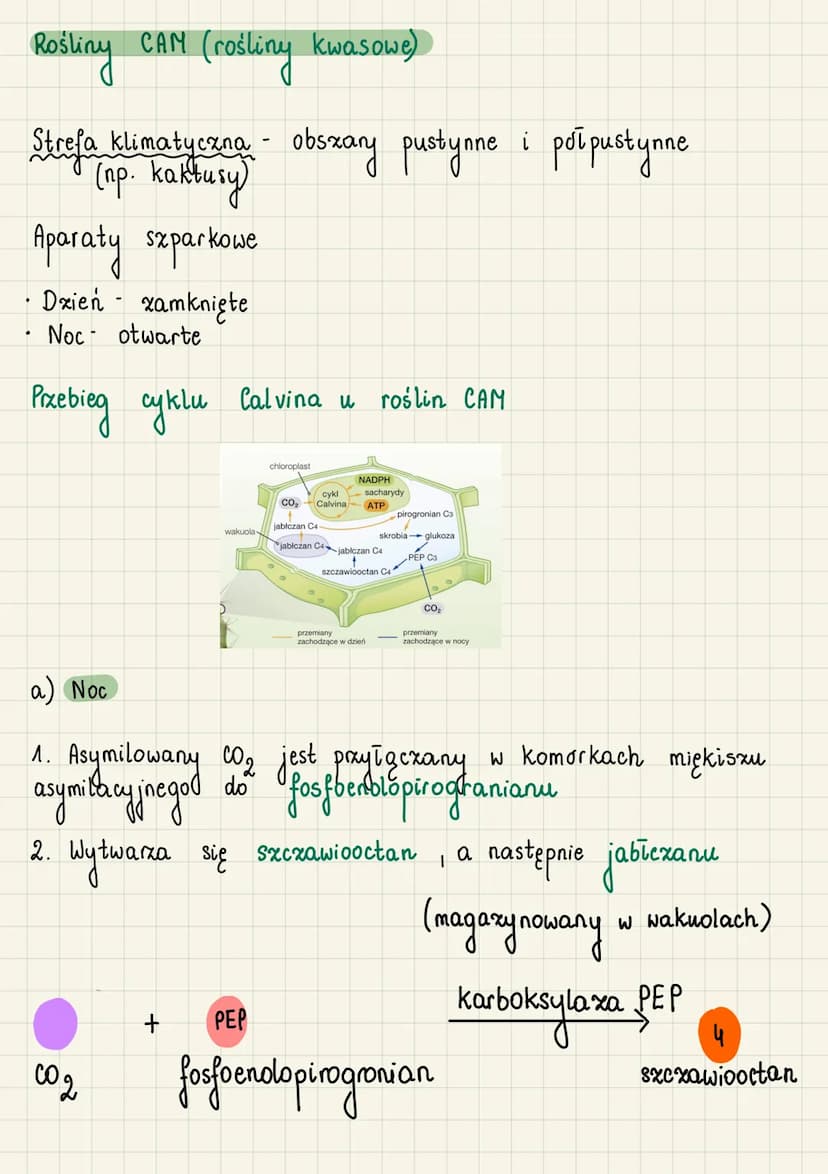 Rośliny CAM (rośliny kwasowe)
Strefa klimatyczna - obszary pustynne i półpustynne
(np. kaktusy)
Aparaty szparkowe
• Dzień - zamknięte
• Noc - otwarte
Przebieg cyklu Calvina u roślin CAM
chloroplast
NADPH
cykl Calvina
sacharydy
CO₂
ATP
pirogronian C3
jabłczan C4
wakuola
skrobia → glukoza
jabłczan C4
jabłczan C4
PEP C3
szczawiooctan C4
CO₂
przemiany zachodzące w dzień
przemiany zachodzące w nocy
a) Noc
1. Asymilowany CO₂ jest przyłączany w komórkach miękiszu
asymilacyjnego do fosfoenolopirogranianu
2. Wytwarza się szczawiooctan, a następnie jabłczanu
(magazynowany w wakuolach)
karboksylaza PEP
+ PEP → 4
CO₂ fosfoenolopirogronian szczawiooctan